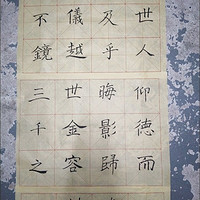 世人仰徳而
及乎晦影歸
儀越世金容
不鏡三千之